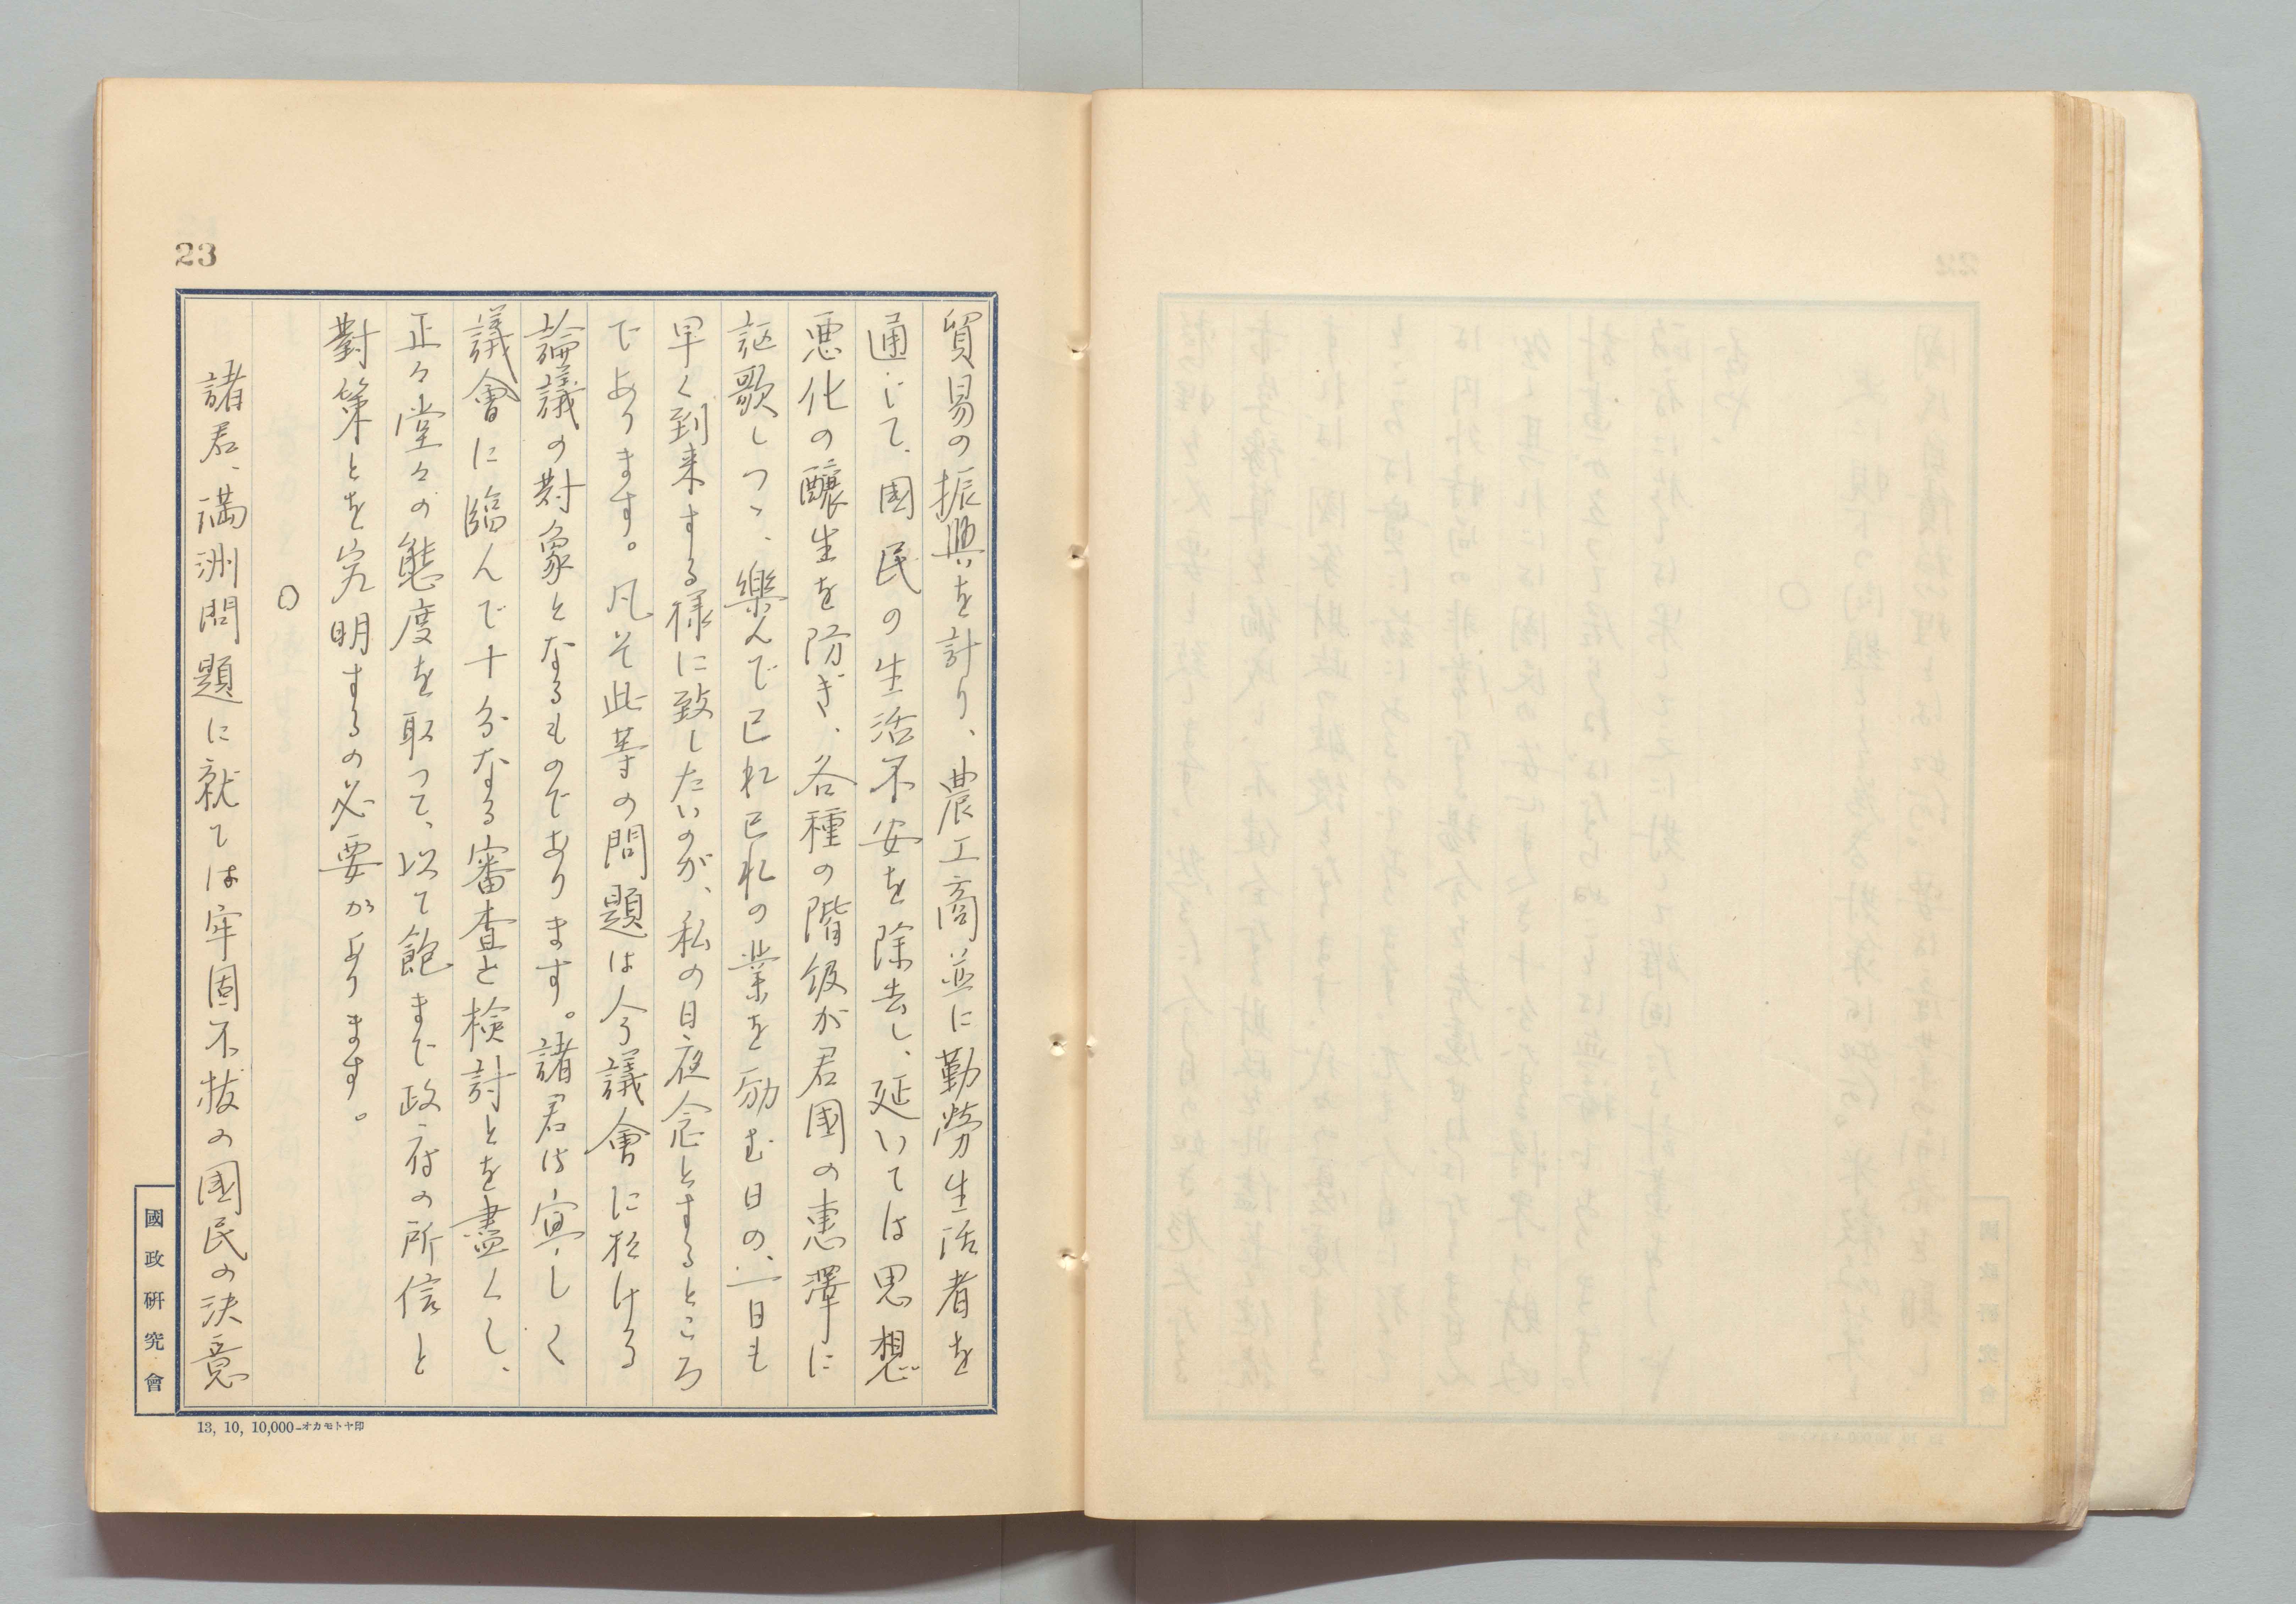 23
貿易の振興を計り、農工商並に勤勞生活者を
通じて、国民の生活不安を除去し、延いては思想
悪化の釀生を防ぎ、各種の階級が君國の恵澤に
謳歌しつゝ、樂んで己れ己れの業を励む日の、一日も
早く到来する様に致したいのが、私の日夜念とするところ
であります。凡そ此等の問題は今議會に於ける
論議の對象となるものであります。諸君は宜しく
議會に臨んで十分なる審査と検討とを盡くし、
正々堂々の態度を取つて、以て飽まで政府の所信と
對策とを究明するの必要があります。
○
諸君、満洲問題に就ては牢固不抜の國民の決意
國政研究會
13, 10, 10,000-オカモトヤ印